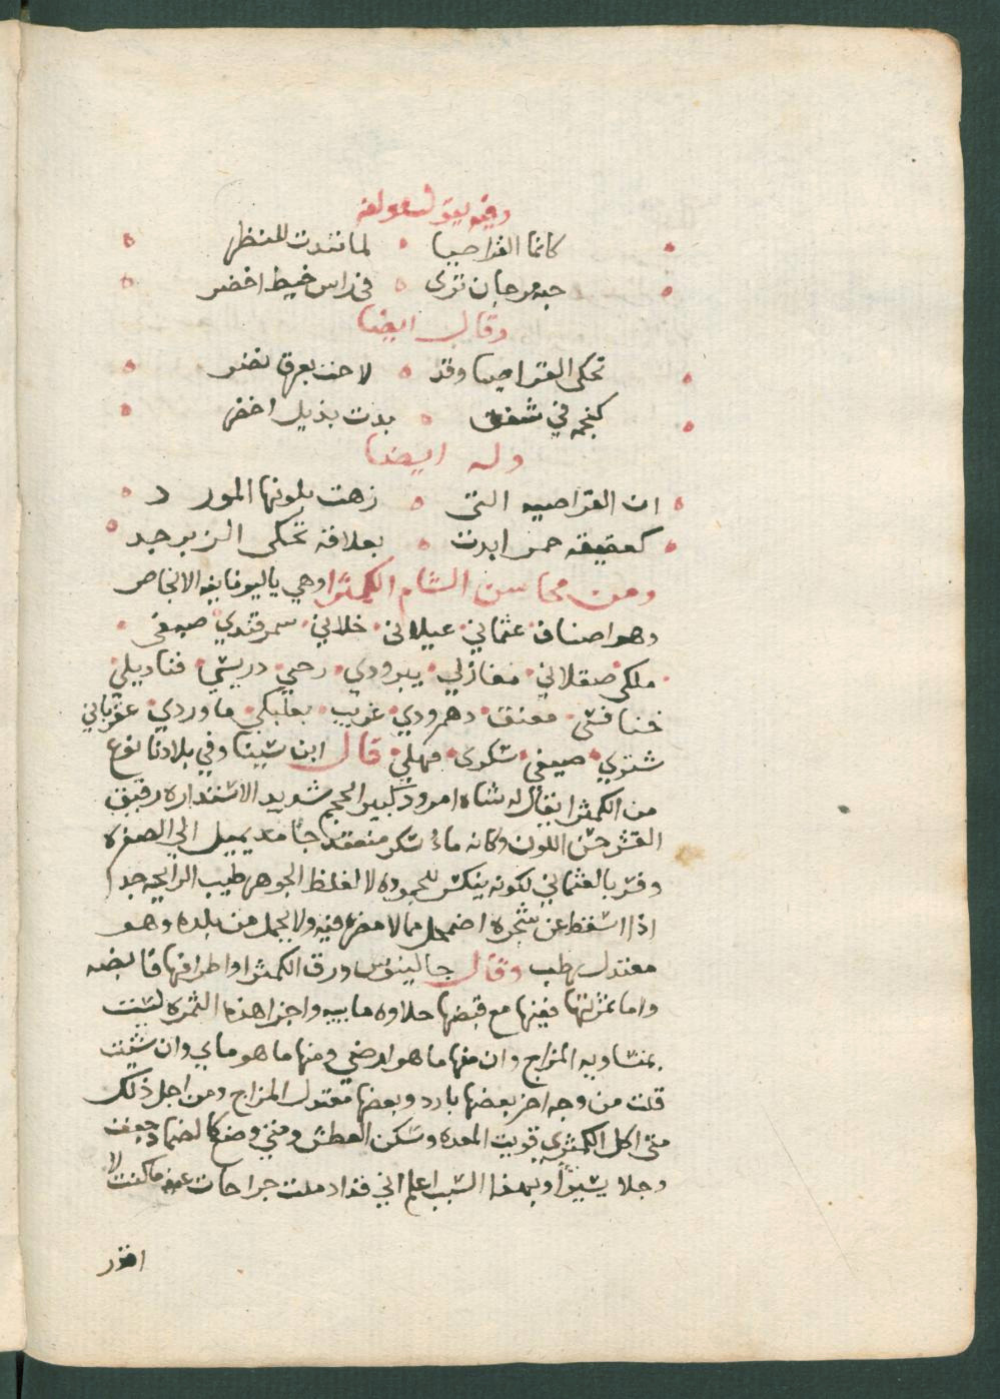 وفيه يقول مولفه
كانما القراصيا • لما تبدت للنظر
حبه مرجان ترى • في راس خيط اخضر
وقال ايضا
تحكى القراصيا وقد • لاحت بعرق نضر
كنجمه في شفق • بدت بذيل اخضر
وله ايضا
ان القراصيه التى • زهت بلونها المورد
كعقيقه حمرا بدت • بعلاقة تحكى الزبرجد
ومن محاسن الشام الكمثرا وهي باليونانيه الانجاص
وهو اصناف عثماني • عيلانى • خلاني • سمرقندي • صيفى •
ملكى • صقلاني • مغازلي • يبرودي • رحبي • دريشي • قناديلي •
خنافسى • معنق • دهمرودي • غريب • بعلبكي • ماوردي • عقرباني
شتوي • صيفي • سكرى • مهلي • قال ابن سينا وفي بلادنا نوع
من الكمثرا يقال له شاه امرود كبير الحجم شديد الاستداره رقيق
القشر حسن اللون وكانه ماء سكر منعقد جامد يميل الي الصفره
وفسر بالعثماني لكونه ينكسر للجموده لا لغلظ الجوهر طيب الرايحه جدا
اذا اسقط عن شجره اضمحل مما لا مضره فيه ولا يحمل من بلده وهو
معتدل رطب وقال جالينوس ورق الكمثرا واطرافها قابضه
واما ثمرتها ففيها مع قبضها حلاوه ماييه واجزا هذه الثمره ليست
بمتساويه المزاج وان منها ما هو ارضي ومنها ما هو ماي وان شيت
قلت من وجه اخر بعضها بارد وبعضها معتدل المزاج ومن اجل ذلك
متى اكل الكمثرى قويت المعده وسكن العطش ومتي وضع كالضماد جفف
وجلا يسيرا وبهذا السبب اعلم اني قد ادملت جراحات عند ما كنت لا
اقدر